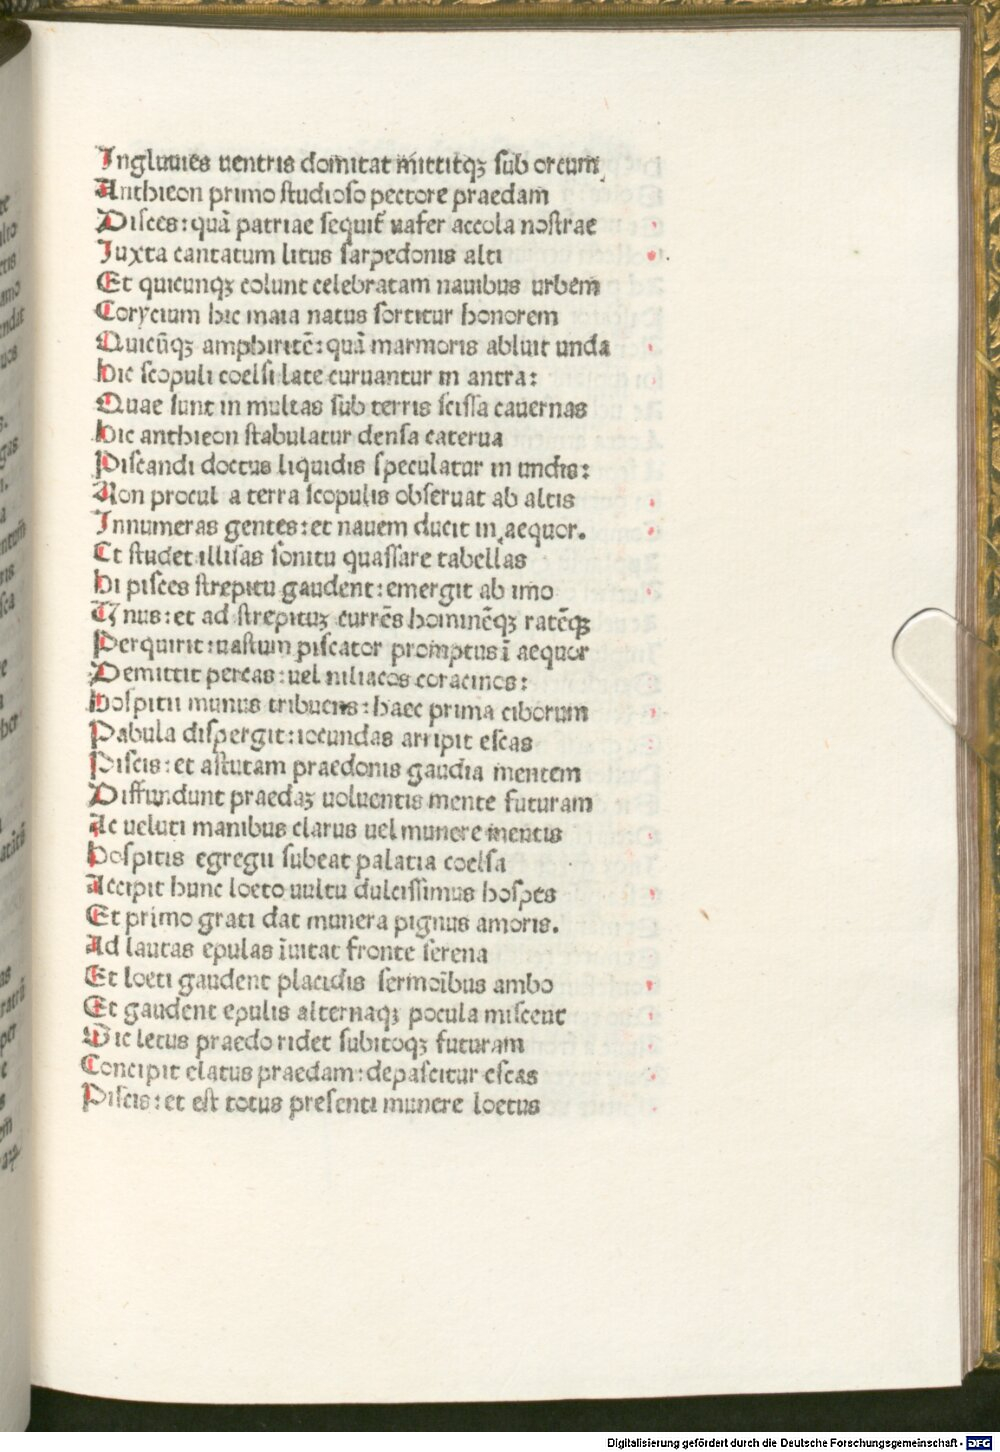 Ingluuies uentris domitat mittitqꝫ sub orcum
Anthieon primo studioso pectore praedam
Disces: quã patriae sequit᷑ uafer accola nostrae
Iuxta cantatum litus sarpedonis alti
Et quicunqꝫ colunt celebratam nauibus urbem
Corycium hic maia natus sortitur honorem
Quicũqꝫ amphiritẽ: quã marmoris abluit unda
Hic scopuli coelsi late curuantur in antra:
Quae sunt in multas sub terris scissa cauernas
Hic anthieon stabulatur densa caterua
Piscandi doctus liquidis speculatur in undis:
Non procul a terra scopulis obseruat ab altis
Innumeras gentes: et nauem ducit in aequor.
Et studet illisas sonitu quassare tabellas
Hi pisces strepitu gaudent: emergit ab imo
Unus: et ad strepituꝫ currẽs hominẽqꝫ ratẽqꝫ
Perquirit: uastum piscator promptus ĩ aequor
Demittit percas: uel niliacos coracinos:
Hospitii munus tribuens: haec prima ciborum
Pabula dispergit: iocundas arripit escas
Piscis: et astutam praedonis gaudia mentem
Diffundunt praedaꝫ uoluentis mente futuram
Ac ueluti manibus clarus uel munere mentis
Hospitis egregii subeat palatia coelsa
Accipit hunc loeto uultu dulcissimus hospes
Et primo grati dat munera pignus amoris.
Ad lautas epulas ĩuitat fronte serena
Et loeti gaudent placidis sermoĩbus ambo
Et gaudent epulis alternaqꝫ pocula miscent
Sic letus praedo ridet subitoqꝫ futuram
Concipit elatus praedam: depascitur escas
Piscis: et est totus presenti munere loetus
Digitalisierung gefördert durch die Deutsche Forschungsgemeinschaft - DFG